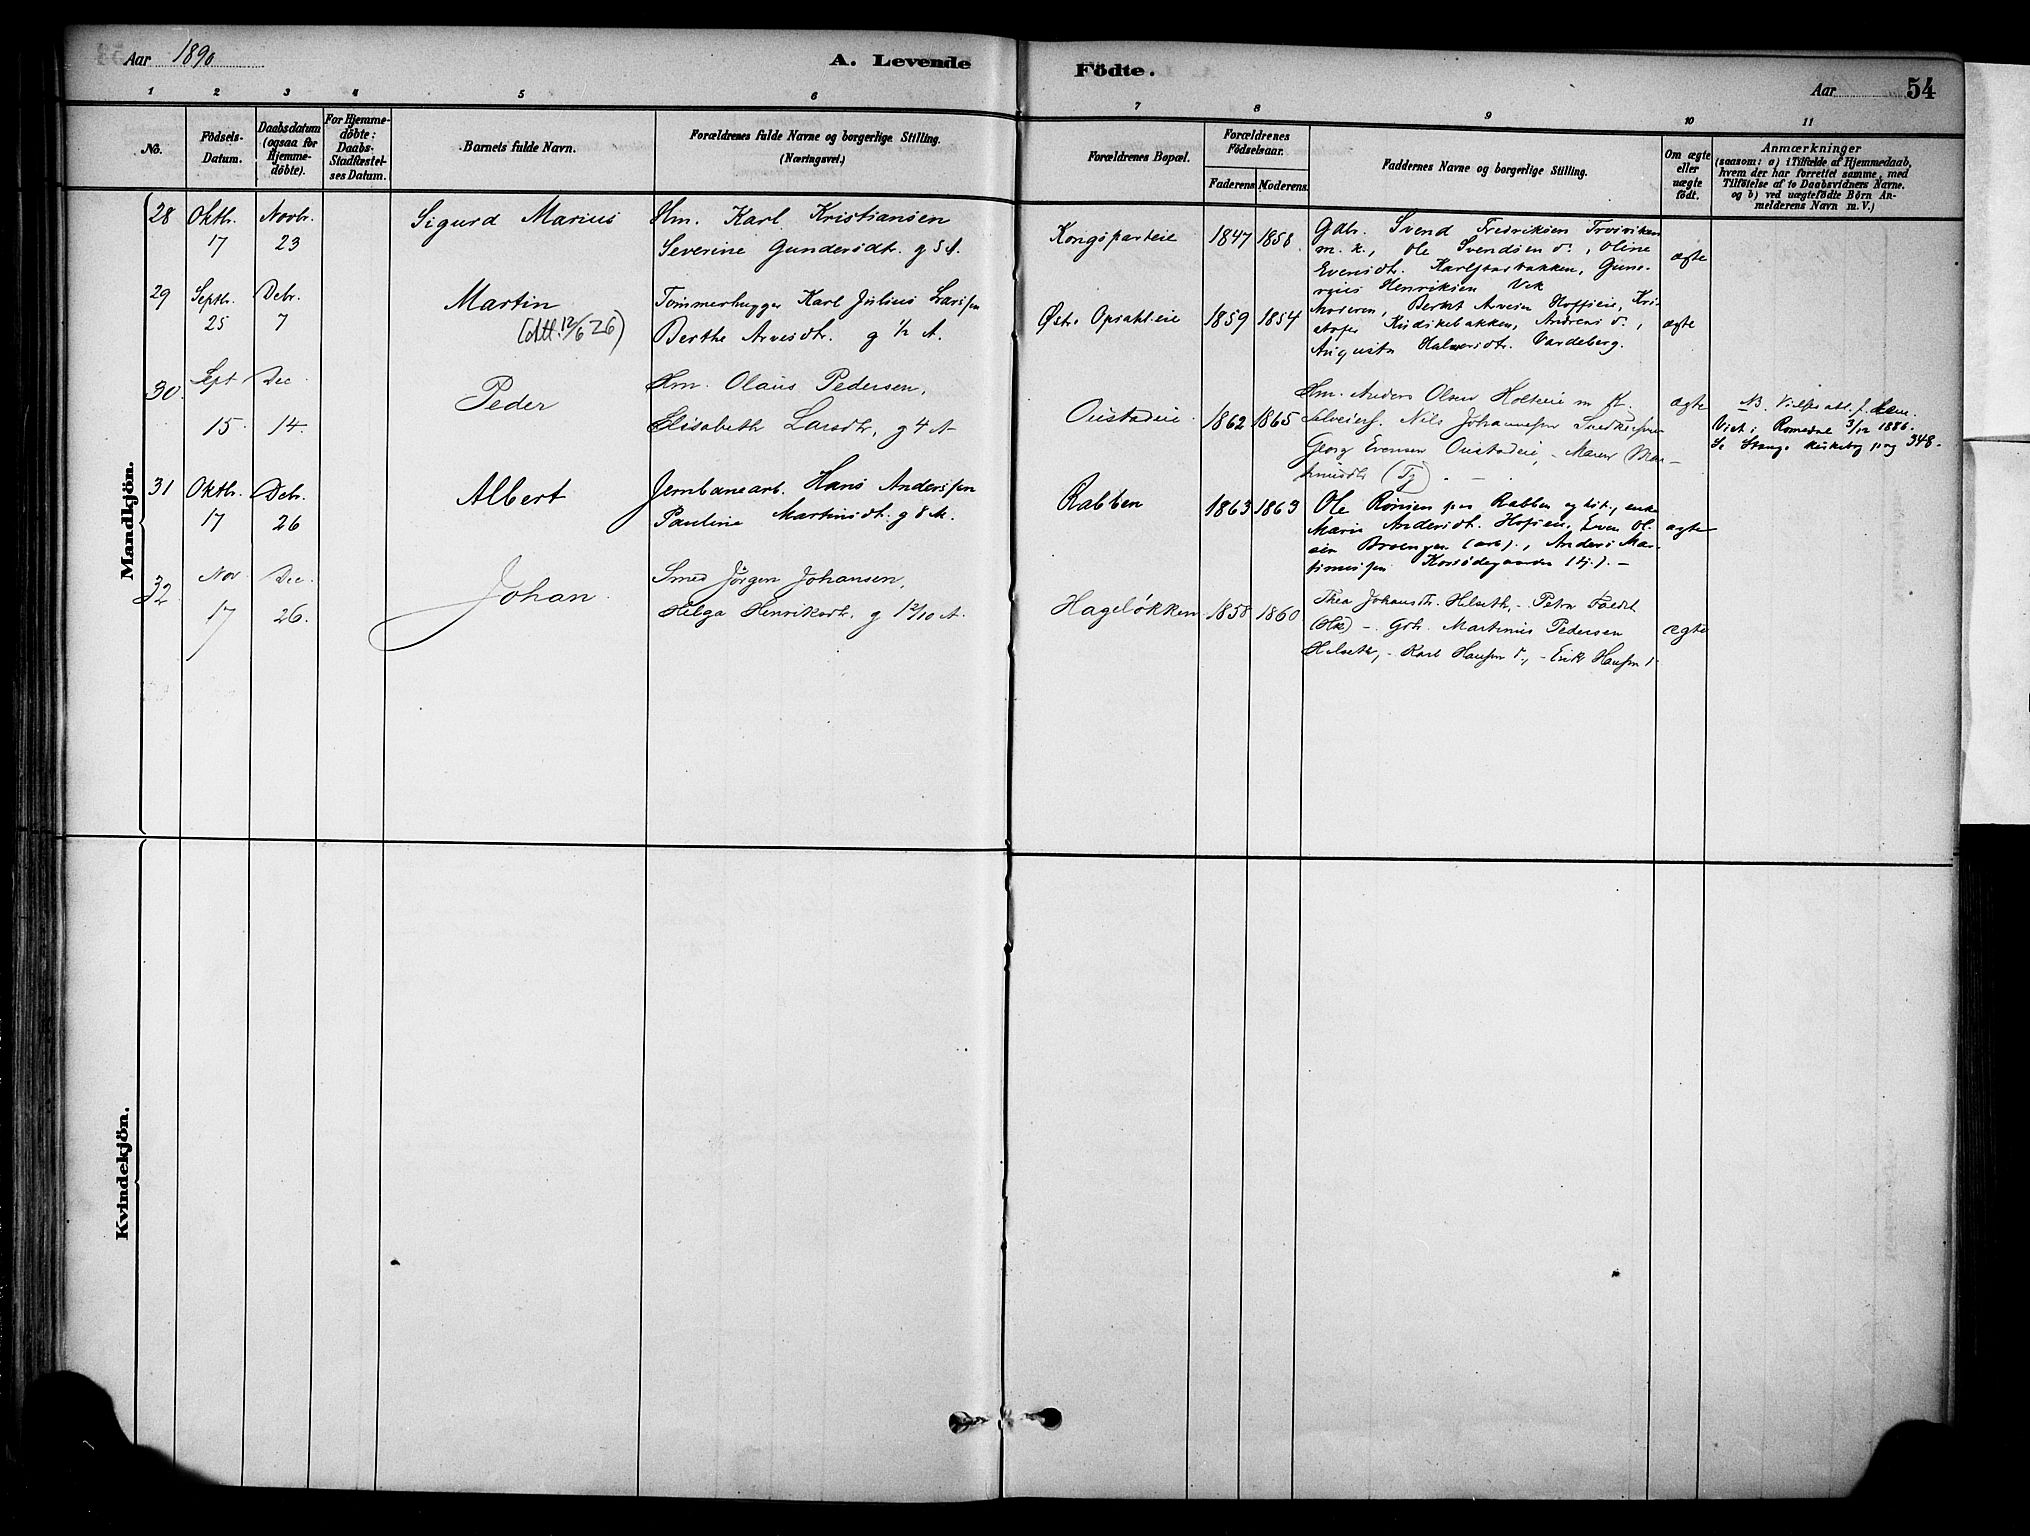 Aar 1890
A. Levende
Födte.
Aar 54
1 2 3 4 5 6 7 8 9 10 11
No.
Födsels-
Datum.
Daabsdatum
(ogsaa for
Hjemme-
döbte).
For Hjemme-
döbte:
Daabs-
Stadfæstel-
ses Datum.
Barnets fulde Navn.
Forældrenes fulde Navne og borgerlige Stilling.
(Næringsvei.)
Forældrenes Bopæl.
Forældrenes
Födselsaar.
Faderens Moderens
Faddernes Navne og borgerlige Stilling.
Om ægte
eller
uægte
födt.
Anmærkninger
(saasom: a) i Tilfælde af Hjemmedaab,
hvem der har forrettet samme, med
Tilföielse af to Daabsvidners Navne.
og b) ved uægtefödte Börn An-
melderens Navn m. V.)
Mandkjön.
28 Oktbr. Novbr. Sigurd Marius Hm. Karl Kristiansen
17 23 Severine Gundersdt. g 5 A.
Kongsparteie 1847 1858
Gdbr. Svend Fredriksen
m. k., Ole Svendsen do., Oline
Evensdt. Karlstadbakken, Gune-
rius Henriksen Vik
ægte
29 Septbr. Debr. Martin Tømmerhugger Karl Julius Larssen
25 7 (Att. 12/6 26) Berthe Arnesdt. g 1/2 A.
Østr. Opsahleie 1859 1854
Moderen, Bernt Arnesen Hoffseie, Kri-
stofer Kudskebakken, Andreas do.,
Augusta Halvorsdt. Vardeberg.
ægte
30 Sept Dec Peder Hm. Olaus Pedersen,
15 14. Elisabeth Larsdtr, g 4 A
Oustadeie 1862 1865
Hm. Anders Olsen Holteie m. H.
Selveierf. Nils Johannessen
Georg Evensen Oustadeie, - Maren
(Tj)
ægte
NB. Vielses att. f.
Viet i Romedal 3/12 1886.
Se Stange kirkebog pag 348.
31 Oktbr. Debr. Albert Jernbanearb. Hans Anderssen
17 26 Pauline Martinsdt. g 8 M.
Rabben 1863 1863
Ole Rønsen paa Rabben og hst., enke
Marie Andersdt. Hofseie, Even Ol-
sen Broengen (arb)., Anders Mar-
tinussen Korsødegaarden (tj). -
ægte
32 Nov Dec. Johan. Smed Jörgen Johansen,
17 26. Helga Henriksdt. g 12/10 A.
Hageløkken 1858 1860
Thea Johansdt. Helseth, - Petra
- Gdr. Martinus Pedersen
Helseth, - Karl Hansen do, - Erik Hansen do
ægte
Kvindekjön.